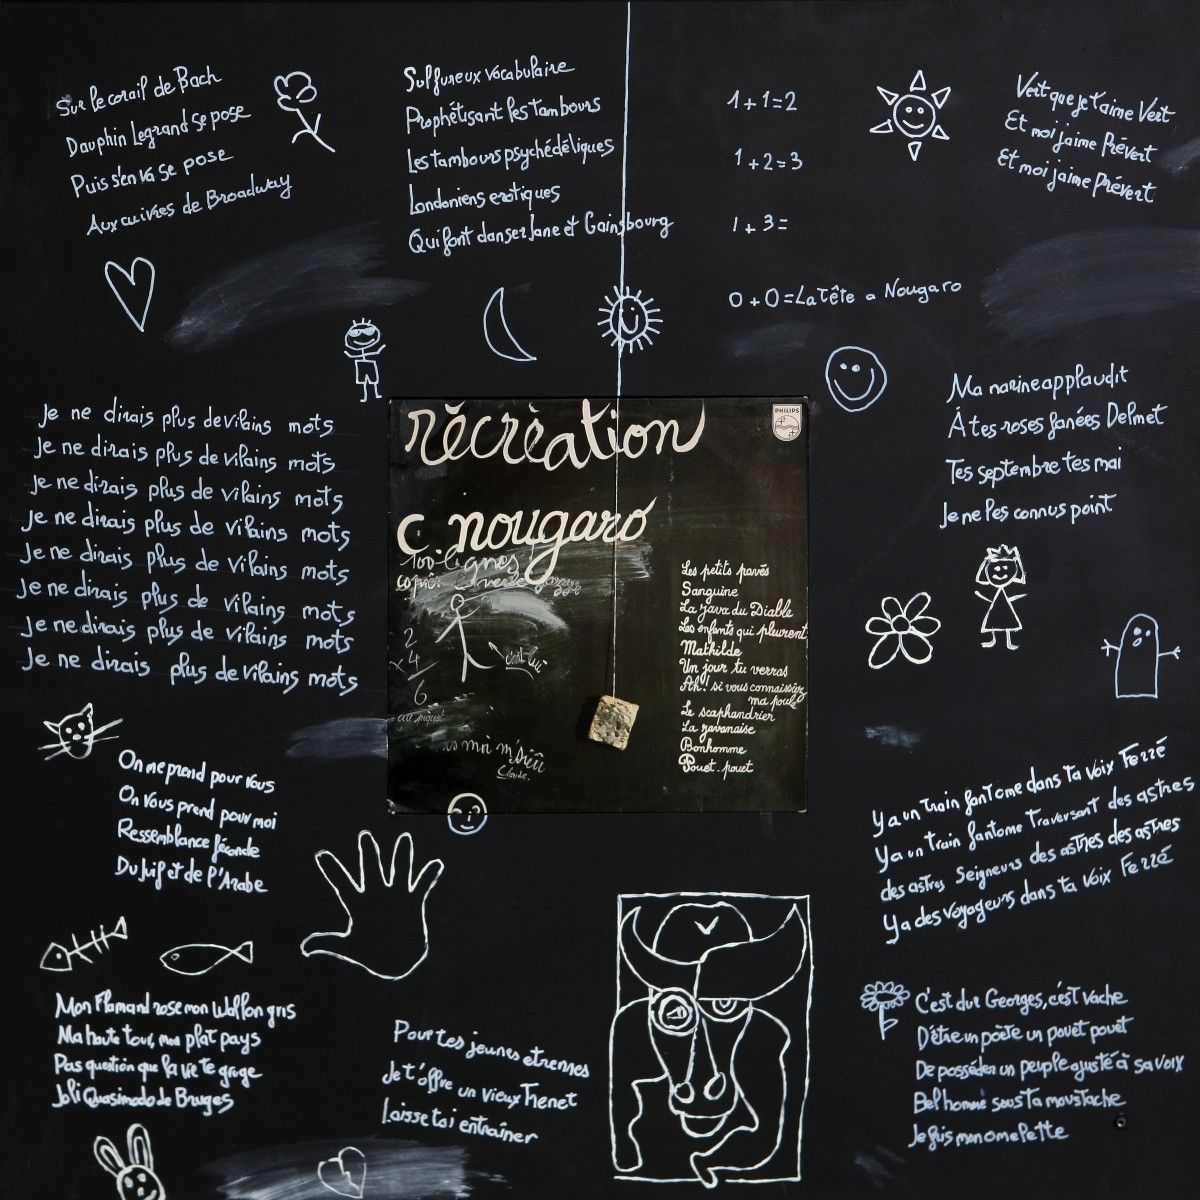 Sur le corail de Bach
Dauphin Legrand se pose
Puis s'en va se pose
Aux cuivres de Broadway
Sulfureux vocabulaire
Prophétisant les tambours
Les tambours psychédéliques
Londoniens erotiques
Qui font danser Jane et Gainsbourg
1+1=2
1+2=3
1+3=
0+0=La Tête a Nougaro
Vert que je t'aime Vert
Et moi j'aime Prévert
Et moi j'aime Prévert
Je ne dirais plus de vilains mots
Je ne dirais plus de vilains mots
Je ne dirais plus de vilains mots
Je ne dirais plus de vilains mots
Je ne dirais plus de vilains mots
Je ne dirais plus de vilains mots
Je ne dirais plus de vilains mots
Je ne dirais plus de vilains mots
récréation
PHILIPS
c. nougaro
100 lignes
copier le verbe
2
x 4
6
au piquet
c'est lui
moi m'sieu
Claude.
Les petits pavés
Sanguine
La java du Diable
Les enfants qui pleurent
Mathilde
Un jour tu verras
Ah! si vous connaissiez
ma poule
Le scaphandrier
La javanaise
Bonhomme
Pouet. pouet
Ma narine applaudit
À tes roses fanées Delmet
Tes septembre tes mai
Je ne les connus point
On me prend pour vous
On vous prend pour moi
Ressemblance féconde
Du Juif et de l'Arabe
Y a un train fantome dans ta voix Ferré
Y a un train fantome traversant des astres
des astres Seigneurs des astres des astres
Y a des voyageurs dans ta voix Ferré
Mon Flamand rose mon Wallon gris
Ma haute tour, mon plat pays
Pas question que la vie te gruge
Joli Quasimodo de Bruges
Pour tes jeunes etrennes
Je t'offre un vieux Trenet
Laisse toi entraîner
C'est dur Georges, c'est vache
D'être un poète un pouêt pouêt
De posséder un peuple ajusté à sa voix
Bel homme sous ta moustache
Je fais mon omelette